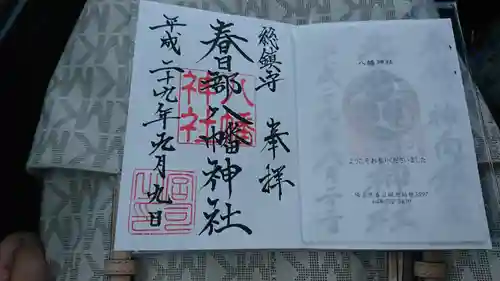 総鎮守 奉拝
春日部八幡神社
平成二十九年元月九日
八幡
神社
八幡神社
ようこそお参りくださいました